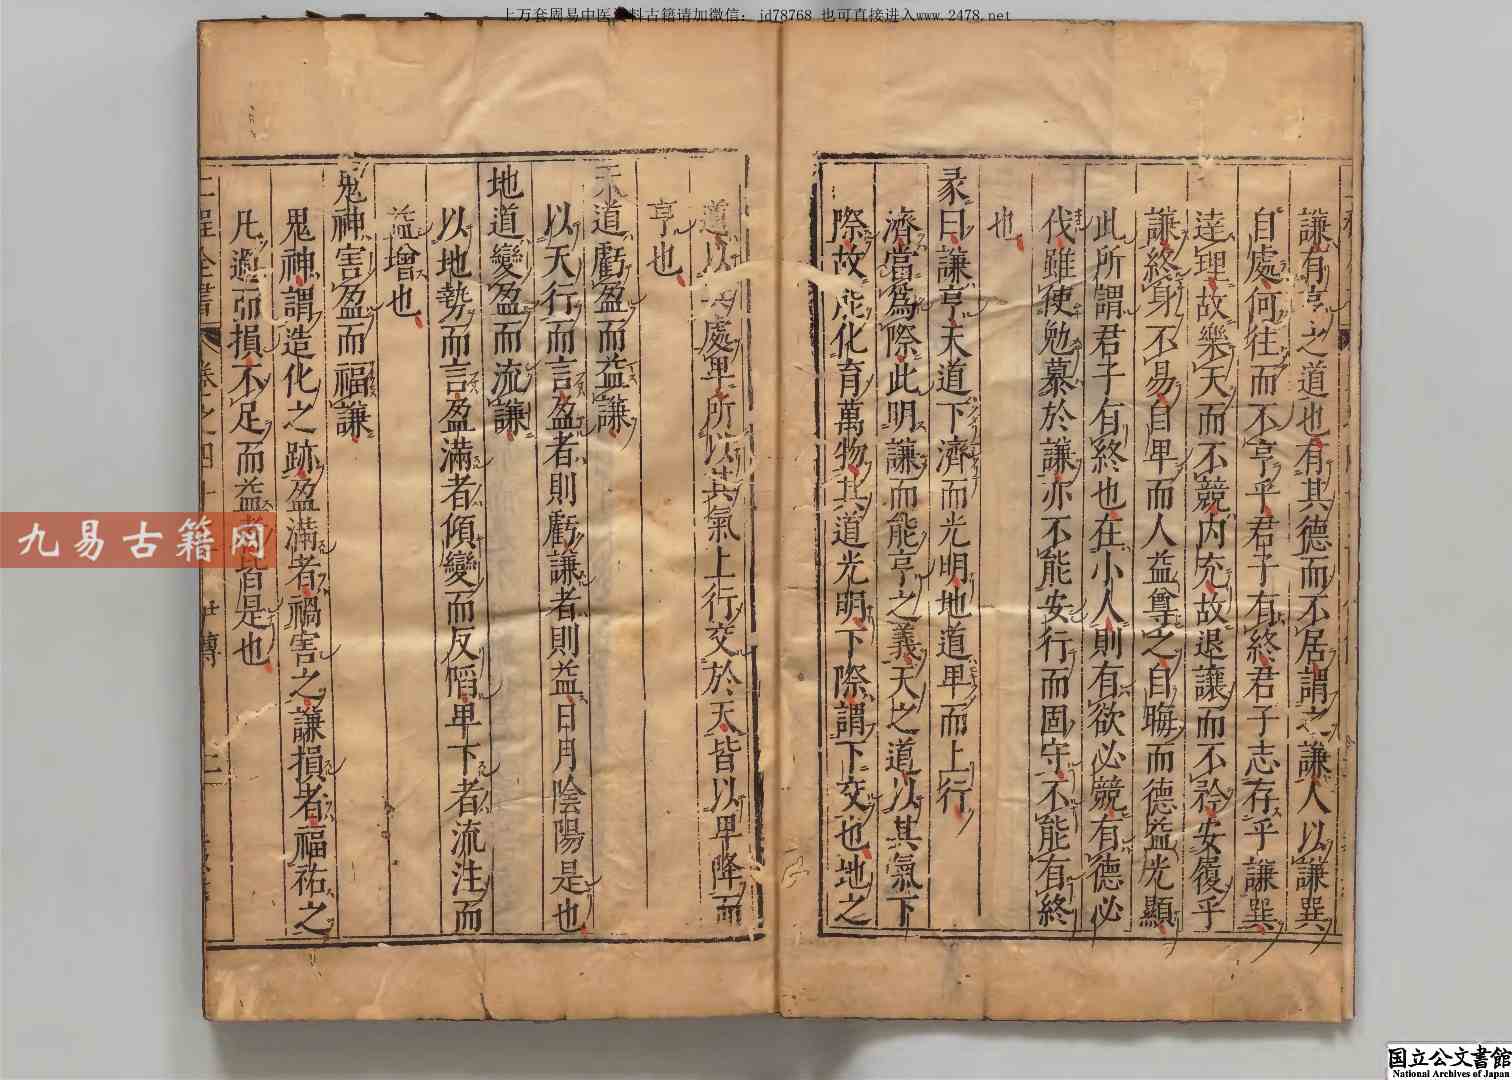 上万套周易中医资料古籍请加微信：jd78768 也可直接进入www.2478.net
謙有亨之道也有其德而不居謂之謙人以謙巽
自處何往而不亨乎君子有終君子志存乎謙巽
達理故樂天而不競内充故退讓而不矜安履乎
謙終身不易自卑而人益尊之自晦而德益光顯
此所謂君子有終也在小人則有欲必競有德必
伐雖使勉慕於謙亦不能安行而固守不能有終
也
彖曰謙亨天道下濟而光明地道卑而上行
濟當爲際此明謙而能亨之義天之道以其氣下
際故能化育萬物其道光明下際謂下交也地之
道以其處卑所以其氣上行交於天皆以卑降而
亨也
天道虧盈而益謙
以天行而言盈者則虧謙者則益日月陰陽是也
地道變盈而流謙
以地勢而言盈滿者傾變而反陷卑下者流注而
益增也
鬼神害盈而福謙
鬼神謂造化之跡盈滿者禍害之謙損者福祐之
凡過而損不足而益者皆是也
二程全書 卷之四十 二
九易古籍网
国立公文書館
National Archives of Japan